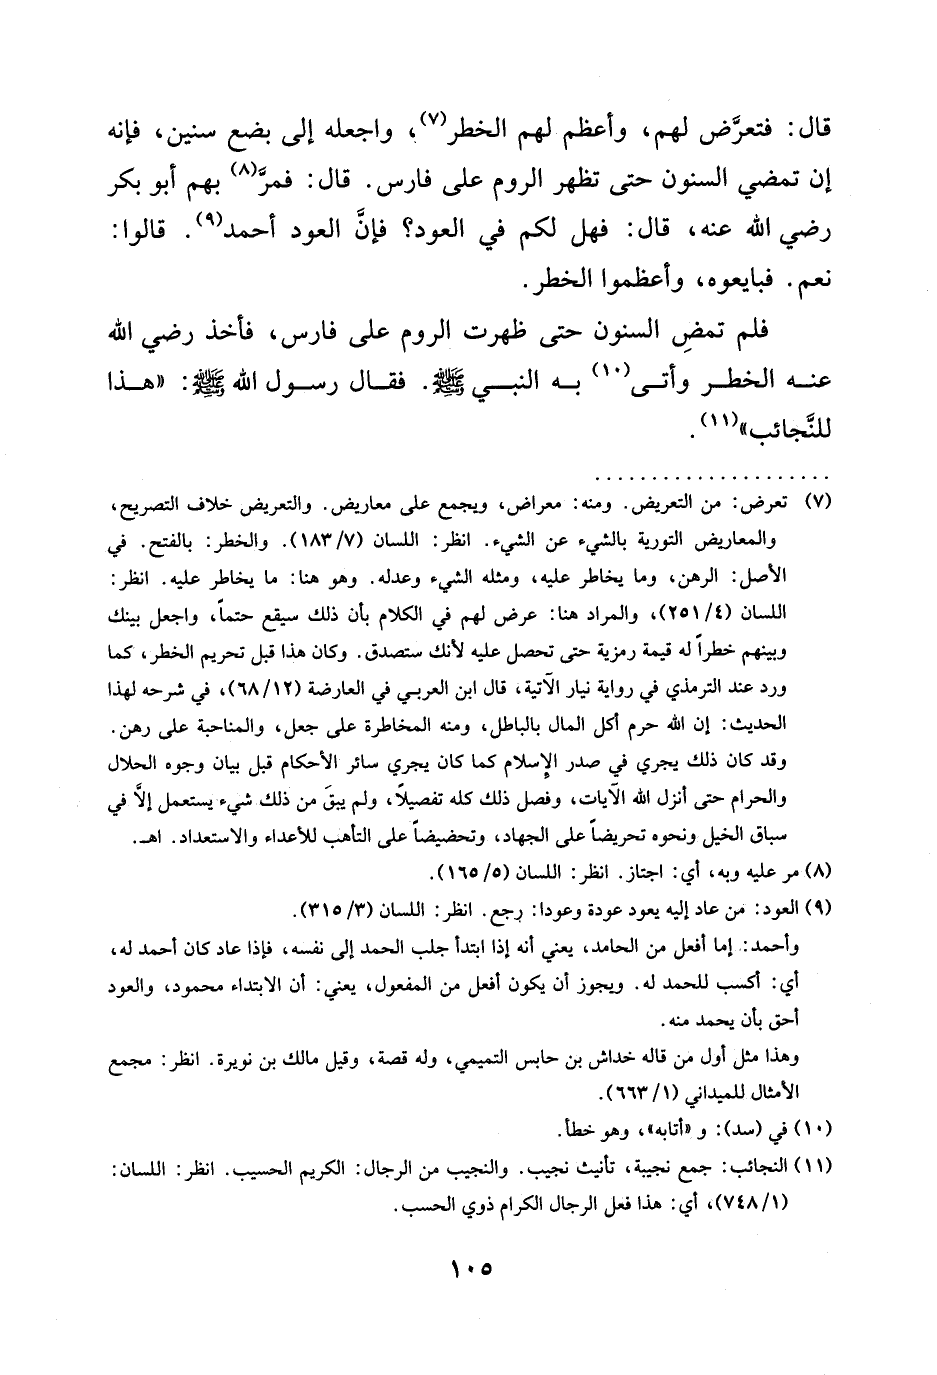 قال: فتعرَّض لهم، وأعظم لهم الخطر(٧)، واجعله إلى بضع سنين، فإنه
إن تمضي السنون حتى تظهر الروم على فارس. قال: فمرَّ(٨) بهم أبو بكر
رضي الله عنه، قال: فهل لكم في العود؟ فإنَّ العود أحمد(٩). قالوا:
نعم. فبايعوه، وأعظموا الخطر.
فلم تمضِ السنون حتى ظهرت الروم على فارس، فأخذ رضي الله
عنه الخطر وأتى(١٠) به النبي ﷺ. فقال رسول الله ﷺ: «هذا
للنَّجائب»(١١).
(٧) تعرض: من التعريض. ومنه: معراض، ويجمع على معاريض. والتعريض خلاف التصريح،
والمعاريض التورية بالشيء عن الشيء. انظر: اللسان (١٨٣/٧). والخطر: بالفتح. في
الأصل: الرهن، وما يخاطر عليه، ومثله الشيء وعدله. وهو هنا: ما يخاطر عليه. انظر:
اللسان (٢٥١/٤)، والمراد هنا: عرض لهم في الكلام بأن ذلك سيقع حتماً، واجعل بينك
وبينهم خطراً له قيمة رمزية حتى تحصل عليه لأنك ستصدق. وكان هذا قبل تحريم الخطر، كما
ورد عند الترمذي في رواية نيار الآتية، قال ابن العربي في العارضة (٦٨/١٢)، في شرحه لهذا
الحديث: إن الله حرم أكل المال بالباطل، ومنه المخاطرة على جعل، والمناحبة على رهن.
وقد كان ذلك يجري في صدر الإسلام كما كان يجري سائر الأحكام قبل بيان وجوه الحلال
والحرام حتى أنزل الله الآيات، وفصل ذلك كله تفصيلاً، ولم يبقَ من ذلك شيء يستعمل إلاَّ في
سباق الخيل ونحوه تحريضاً على الجهاد، وتحضيضاً على التأهب للأعداء والاستعداد. اهـ.
(٨) مر عليه وبه، أي: اجتاز. انظر: اللسان (١٦٥/٥).
(٩) العود: من عاد إليه يعود عودة وعودا: رجع. انظر: اللسان (٣١٥/٣).
وأحمد: إما أفعل من الحامد، يعني أنه إذا ابتدأ جلب الحمد إلى نفسه، فإذا عاد كان أحمد له،
أي: أكسب للحمد له. ويجوز أن يكون أفعل من المفعول، يعني: أن الابتداء محمود، والعود
أحق بأن يحمد منه.
وهذا مثل أول من قاله خداش بن حابس التميمي، وله قصة، وقيل مالك بن نويرة. انظر: مجمع
الأمثال للميداني (٦٦٣/١).
(١٠) في (سد): و «أتابه»، وهو خطأ.
(١١) النجائب: جمع نجيبة، تأنيث نجيب. والنجيب من الرجال: الكريم الحسيب. انظر: اللسان:
(٧٤٨/١)، أي: هذا فعل الرجال الكرام ذوي الحسب.
١٠٥